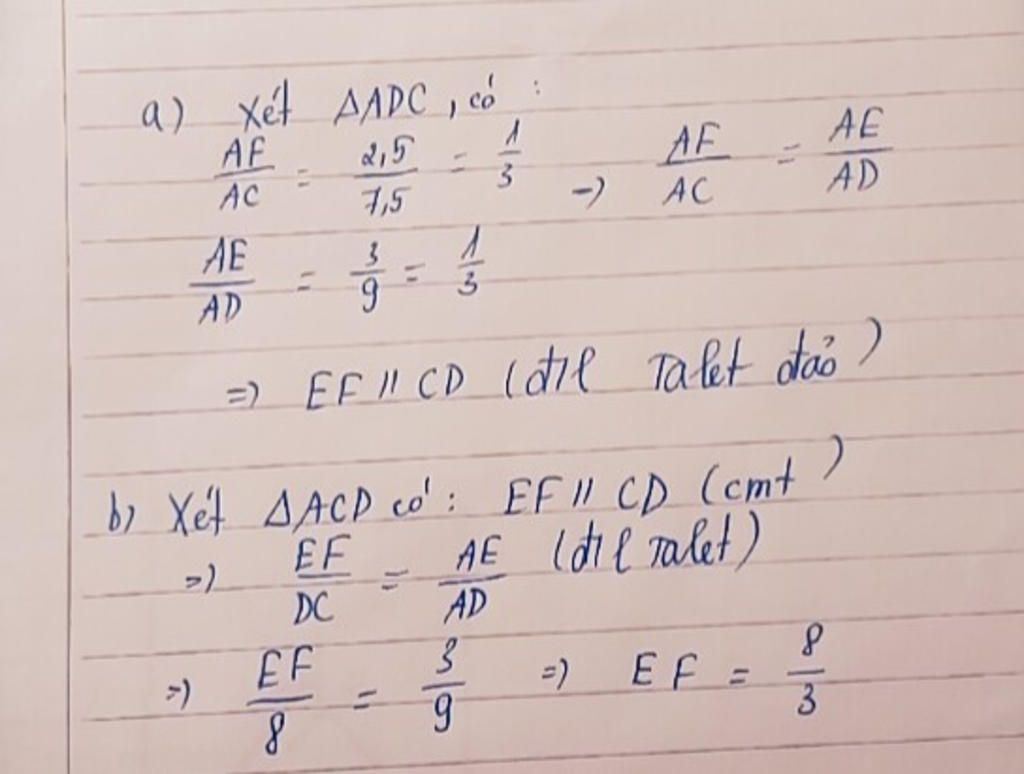 a) Xét ΔADC, có:
AF/AC = 2,5/7,5 = 1/3 → AF/AC = AE/AD
AE/AD = 3/9 = 1/3
=> EF // CD (đ/l Talet đảo)
b) Xét ΔACD có: EF // CD (cmt)
=> EF/DC = AE/AD (đ/l Talet)
=> EF/8 = 3/9 => EF = 8/3